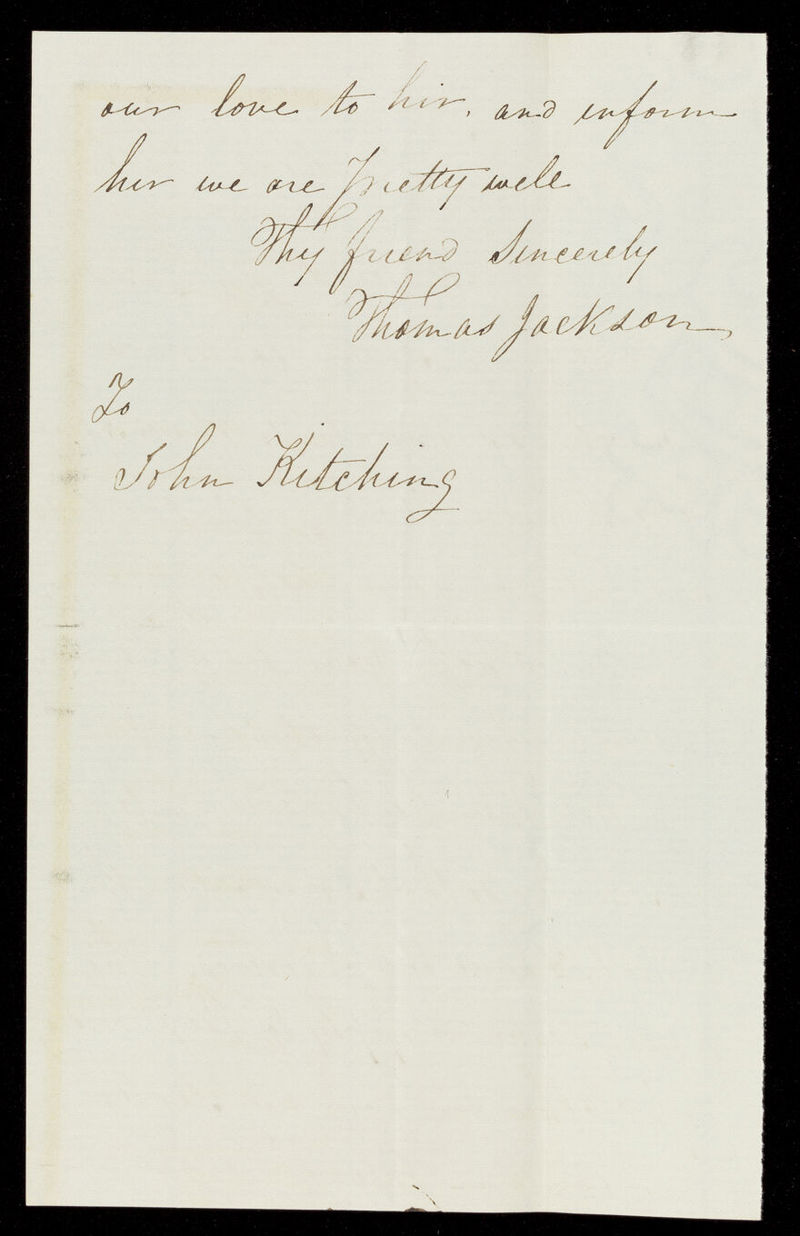 our love to her. and inform
her we are pretty well
Thy friend Sincerely
Thomas Jackson
To
John Kitching